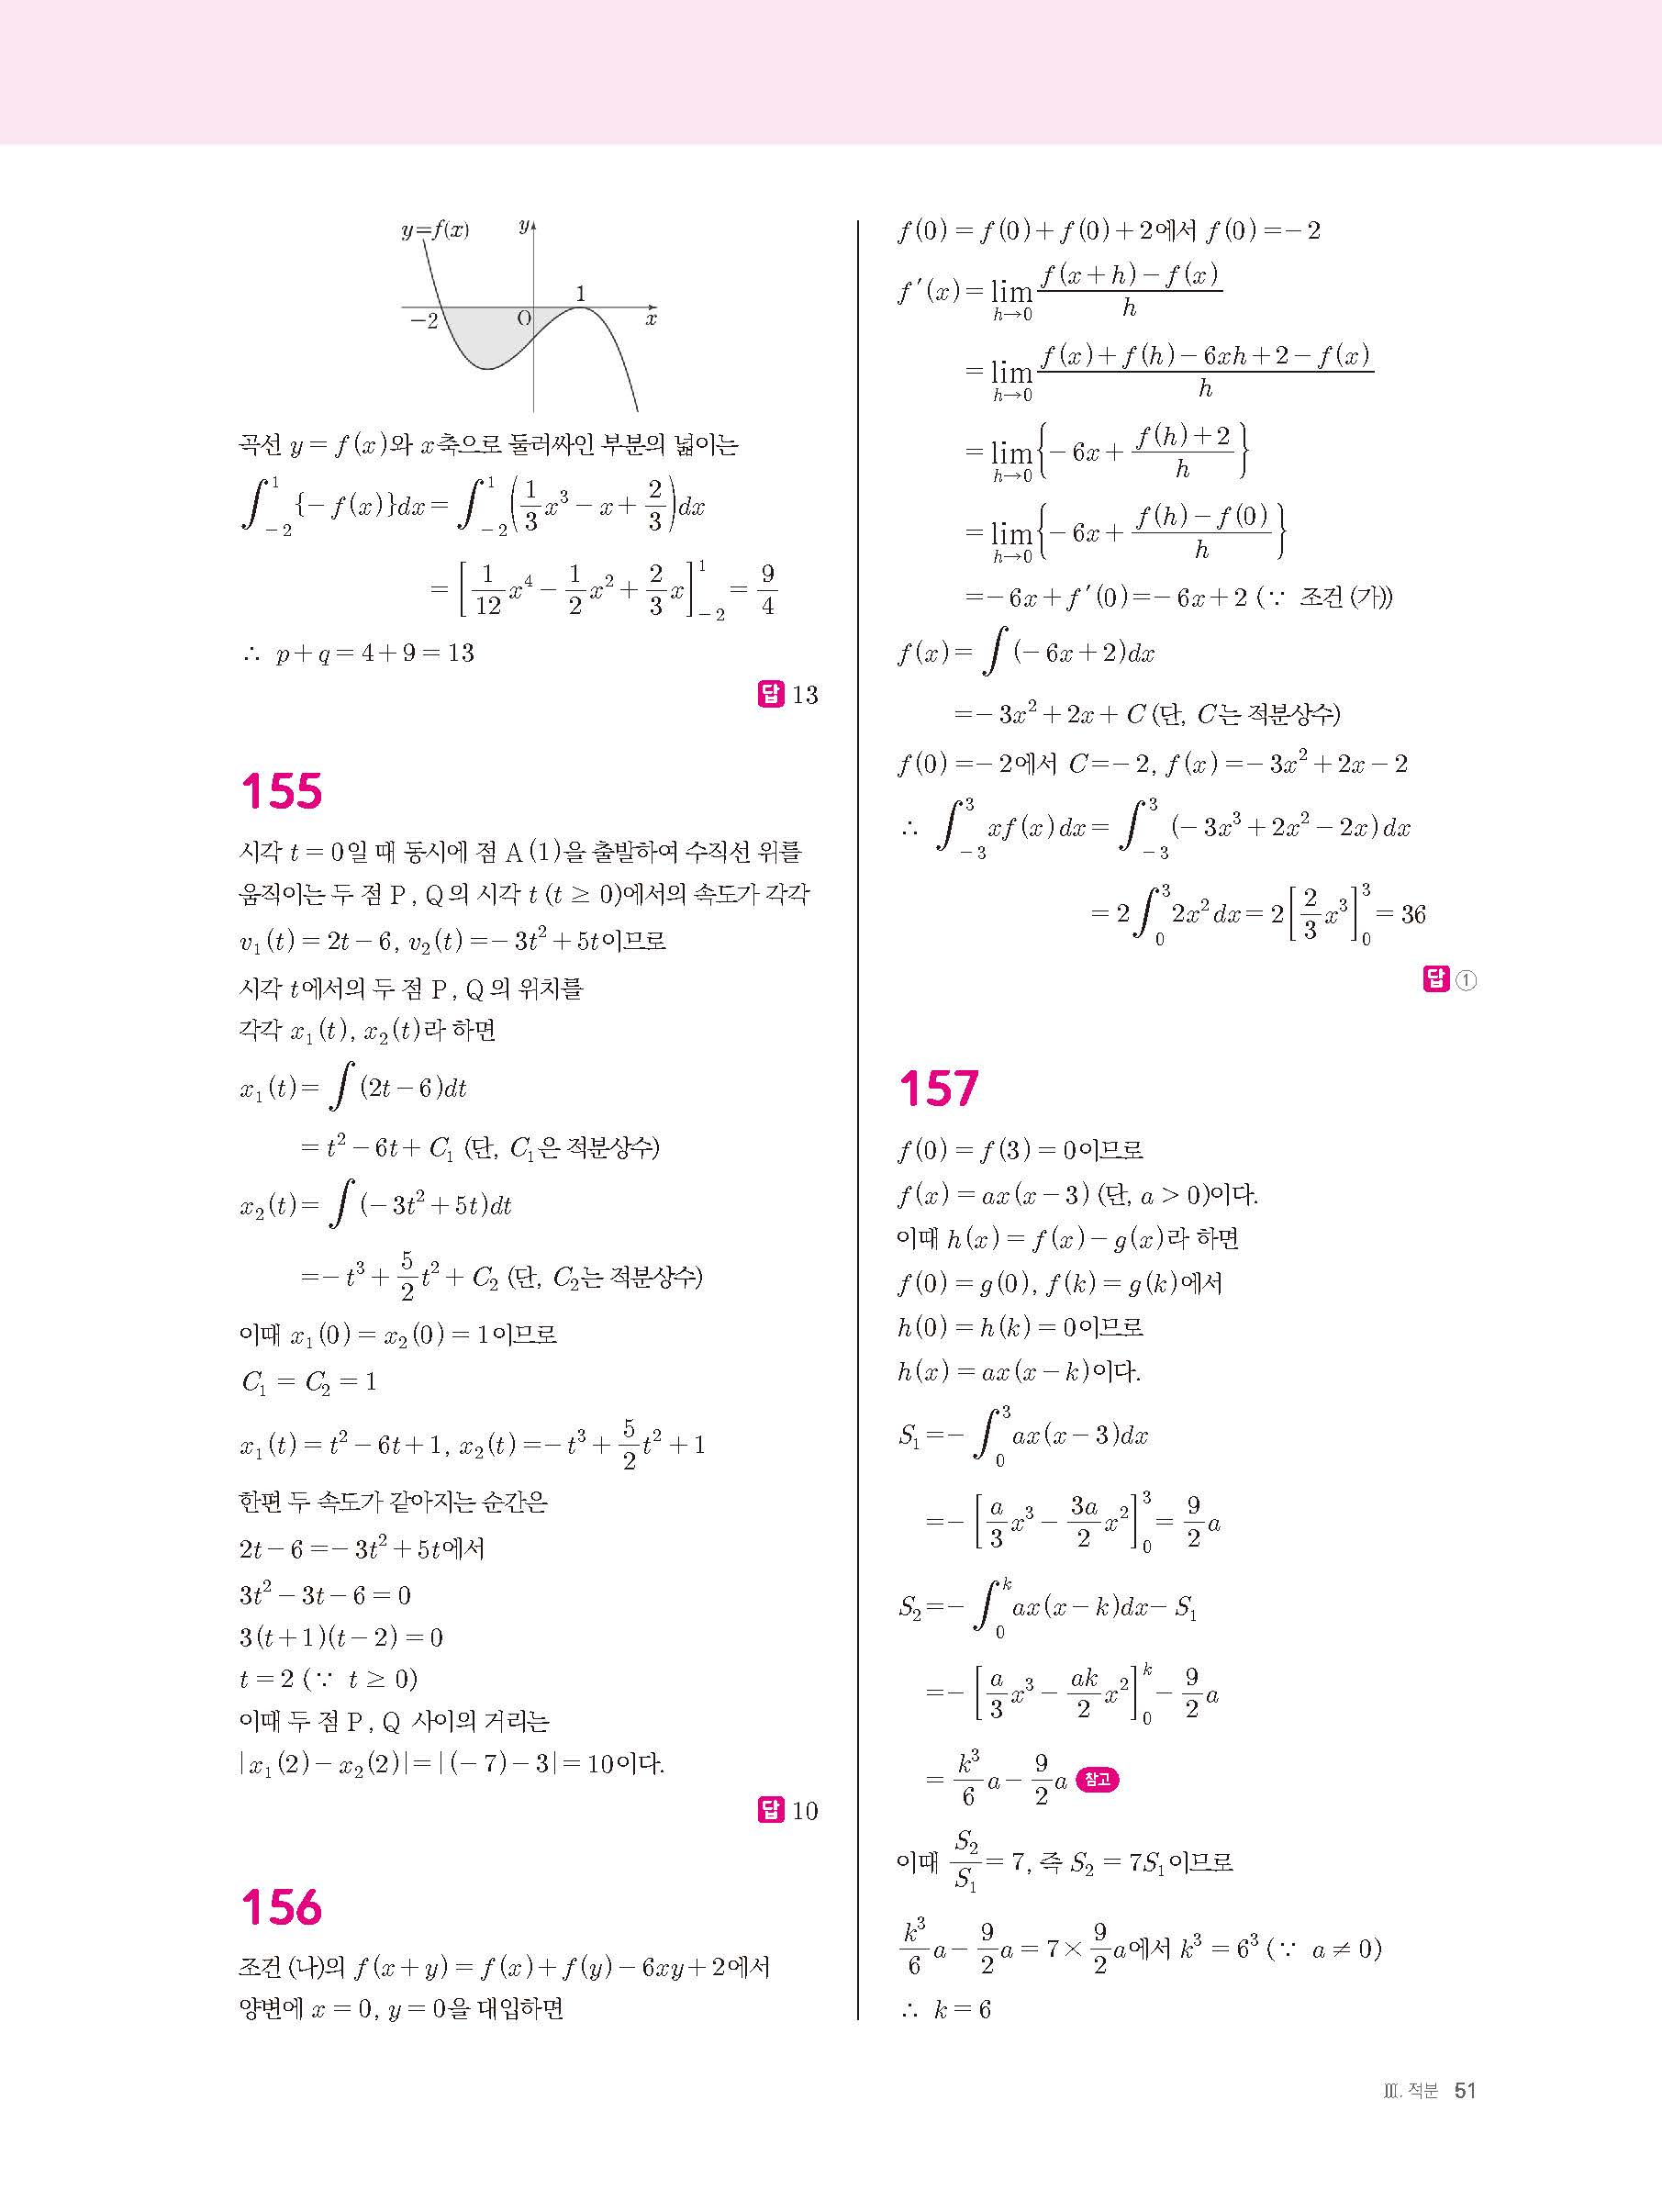 y=f(x)
y
1
-2
O
x
곡선 y = f(x)와 x축으로 둘러싸인 부분의 넓이는
∫_{-2}^{1} {-f(x)}dx = ∫_{-2}^{1} (1/3 x³ - x + 2/3)dx
= [1/12 x⁴ - 1/2 x² + 2/3 x]_{-2}^{1} = 9/4
∴ p+q = 4+9 = 13
답 13
155
시각 t = 0일 때 동시에 점 A(1)을 출발하여 수직선 위를
움직이는 두 점 P, Q의 시각 t (t ≥ 0)에서의 속도가 각각
v₁(t) = 2t-6, v₂(t) = -3t²+5t이므로
시각 t에서의 두 점 P, Q의 위치를
각각 x₁(t), x₂(t)라 하면
x₁(t) = ∫(2t-6)dt
= t²-6t+C₁ (단, C₁은 적분상수)
x₂(t) = ∫(-3t²+5t)dt
= -t³ + 5/2 t² + C₂ (단, C₂는 적분상수)
이때 x₁(0) = x₂(0) = 1이므로
C₁ = C₂ = 1
x₁(t) = t²-6t+1, x₂(t) = -t³ + 5/2 t² + 1
한편 두 속도가 같아지는 순간은
2t-6 = -3t²+5t에서
3t²-3t-6 = 0
3(t+1)(t-2) = 0
t = 2 (∵ t ≥ 0)
이때 두 점 P, Q 사이의 거리는
|x₁(2)-x₂(2)| = |(-7)-3| = 10이다.
답 10
156
조건 (나)의 f(x+y) = f(x)+f(y)-6xy+2에서
양변에 x = 0, y = 0을 대입하면
f(0) = f(0)+f(0)+2에서 f(0) = -2
f′(x) = lim_{h→0} (f(x+h)-f(x))/h
= lim_{h→0} (f(x)+f(h)-6xh+2-f(x))/h
= lim_{h→0} {-6x + (f(h)+2)/h}
= lim_{h→0} {-6x + (f(h)-f(0))/h}
= -6x+f′(0) = -6x+2 (∵ 조건 (가))
f(x) = ∫(-6x+2)dx
= -3x²+2x+C (단, C는 적분상수)
f(0) = -2에서 C = -2, f(x) = -3x²+2x-2
∴ ∫_{-3}^{3} xf(x)dx = ∫_{-3}^{3} (-3x³+2x²-2x)dx
= 2∫_{0}^{3} 2x²dx = 2[2/3 x³]_{0}^{3} = 36
답 ①
157
f(0) = f(3) = 0이므로
f(x) = ax(x-3) (단, a > 0)이다.
이때 h(x) = f(x)-g(x)라 하면
f(0) = g(0), f(k) = g(k)에서
h(0) = h(k) = 0이므로
h(x) = ax(x-k)이다.
S₁ = -∫_{0}^{3} ax(x-3)dx
= -[a/3 x³ - 3a/2 x²]_{0}^{3} = 9/2 a
S₂ = -∫_{0}^{k} ax(x-k)dx - S₁
= -[a/3 x³ - ak/2 x²]_{0}^{k} - 9/2 a
= k³/6 a - 9/2 a 참고
이때 S₂/S₁ = 7, 즉 S₂ = 7S₁이므로
k³/6 a - 9/2 a = 7 × 9/2 a에서 k³ = 6³ (∵ a ≠ 0)
∴ k = 6
Ⅲ. 적분 51